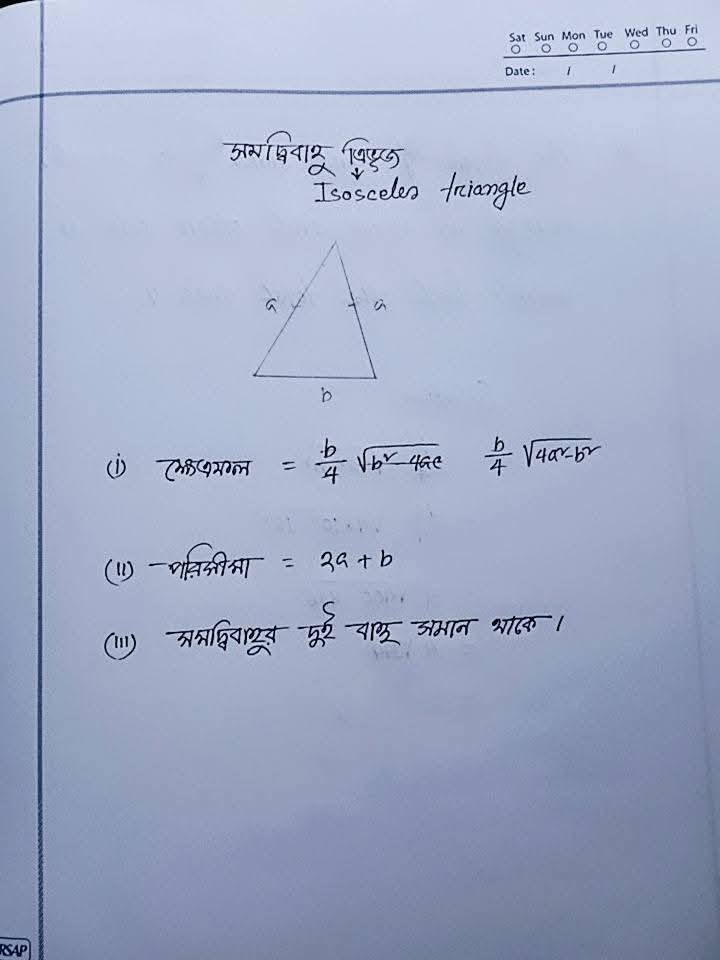 Sat Sun Mon Tue Wed Thu Fri
Date: / /
সমদ্বিবাহু ত্রিভুজ
↓
Isosceles triangle
a a
b
(i) ক্ষেত্রফল = b/4 √b² - 4ac b/4 √4a²-b²
(ii) পরিসীমা = 2a + b
(iii) সমদ্বিবাহুর দুই বাহু সমান থাকে।
RSAP